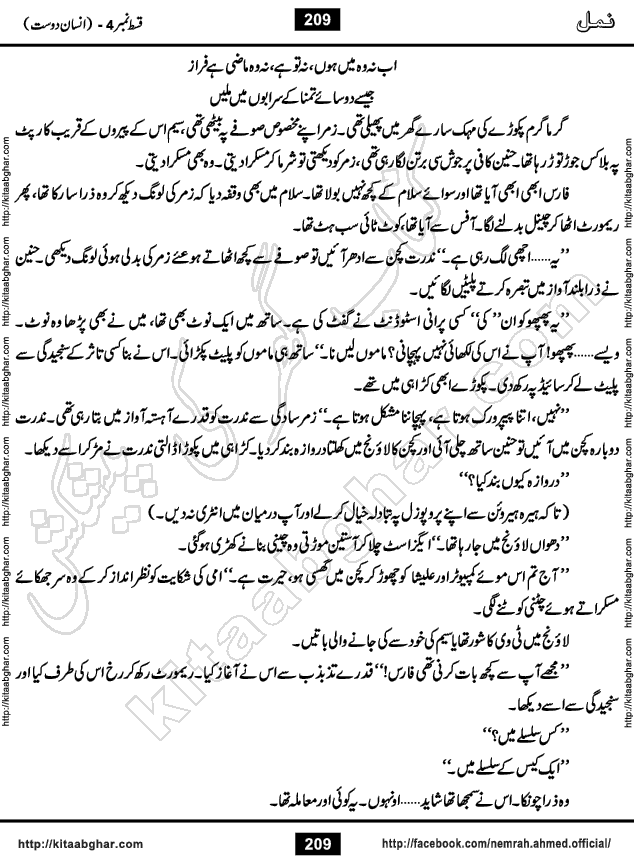 نمل
209
قسط نمبر 4 - (انسان دوست)
اب نہ وہ میں ہوں، نہ تو ہے، نہ وہ ماضی ہے فراز
جیسے دو سائے تمنا کے سرابوں میں ملیں
گرما گرم پکوڑے کی مہک سارے گھر میں پھیلی تھی۔ زمر اپنے مخصوص صوفے پہ بیٹھی تھی، سیم اس کے پیروں کے قریب کارپٹ
پہ بلاکس جوڑ توڑ رہا تھا۔ حنین کافی پرجوش سی برتن لگا رہی تھی، زمر کو دیکھتی تو شرما کر مسکرا دیتی۔ وہ بھی مسکرا دیتی۔
فارس ابھی ابھی آیا تھا اور سوائے سلام کے کچھ نہیں بولا تھا۔ سلام میں بھی وقفہ دیا کہ زمر کی لونگ دیکھ کر وہ ذرا سا رکا تھا، پھر
ریمورٹ اٹھا کر چینل بدلنے لگا۔ آفس سے آیا تھا، کوٹ ٹائی سب ہٹ تھا۔
”یہ...... اچھی لگ رہی ہے۔“ ندرت کچن سے ادھر آئیں تو صوفے سے کچھ اٹھاتے ہوئے زمر کی بدلی ہوئی لونگ دیکھی۔ حنین
نے ذرا بلند آواز میں تبصرہ کرتے پلیٹیں لگائیں۔
”یہ پھپھو کو ان” کی“ کسی پرانی اسٹوڈنٹ نے گفٹ کی ہے۔ ساتھ میں ایک نوٹ بھی تھا، میں نے بھی پڑھا وہ نوٹ۔
ویسے...... پھپھو! آپ نے اس کی لکھائی نہیں پہچانی؟ ماموں لیں نا۔“ ساتھ ہی ماموں کو پلیٹ پکڑائی۔ اس نے بنا کسی تاثر کے سنجیدگی سے
پلیٹ لے کر سائیڈ پہ رکھ دی۔ پکوڑے ابھی کڑاہی میں تھے۔
”نہیں، اتنا پیپر ورک ہوتا ہے، پہچاننا مشکل ہوتا ہے۔“ زمر سادگی سے ندرت کو قدرے آہستہ آواز میں بتا رہی تھی۔ ندرت
دوبارہ کچن میں آئیں تو حنین ساتھ چلی آئی اور کچن کا لاؤنج میں کھلتا دروازہ بند کر دیا۔ کڑاہی میں پکوڑا ڈالتی ندرت نے مڑ کر اسے دیکھا۔
”دروازہ کیوں بند کیا؟“
(تاکہ ہیرو ہیروئن سے اپنے پروپوزل پہ تبادلہ خیال کر لے اور آپ درمیان میں انٹری نہ دیں۔)
”دھواں لاؤنج میں جا رہا تھا۔“ ایگزاسٹ چلا کر آستین موڑتی وہ چٹنی بنانے کھڑی ہو گئی۔
”آج تم اس موئے کمپیوٹر اور علیشا کو چھوڑ کر کچن میں گھسی ہو، حیرت ہے۔“ امی کی شکایت کو نظر انداز کر کے وہ سر جھکائے
مسکراتے ہوئے چٹنی کوٹنے لگی۔
لاؤنج میں ٹی وی کا شور تھا یا سیم کی خود سے کی جانے والی باتیں۔
”مجھے آپ سے کچھ بات کرنی تھی فارس!“ قدرے تذبذب سے اس نے آغاز کیا۔ ریمورٹ رکھ کر رخ اس کی طرف کیا اور
سنجیدگی سے اسے دیکھا۔
”کس سلسلے میں؟“
”ایک کیس کے سلسلے میں۔“
وہ ذرا چونکا۔ اس نے سمجھا تھا شاید...... اونہوں۔ یہ کوئی اور معاملہ تھا۔
کتاب گھر کی پیشکش
kitaabghar.com
http://kitaabghar.com
http://kitaabghar.com
http://kitaabghar.com
http://kitaabghar.com
http://kitaabghar.com
http://kitaabghar.com
http://kitaabghar.com
http://kitaabghar.com
http://kitaabghar.com
http://kitaabghar.com
http://kitaabghar.com
http://kitaabghar.com
http://kitaabghar.com
209
http://facebook.com/nemrah.ahmed.official/